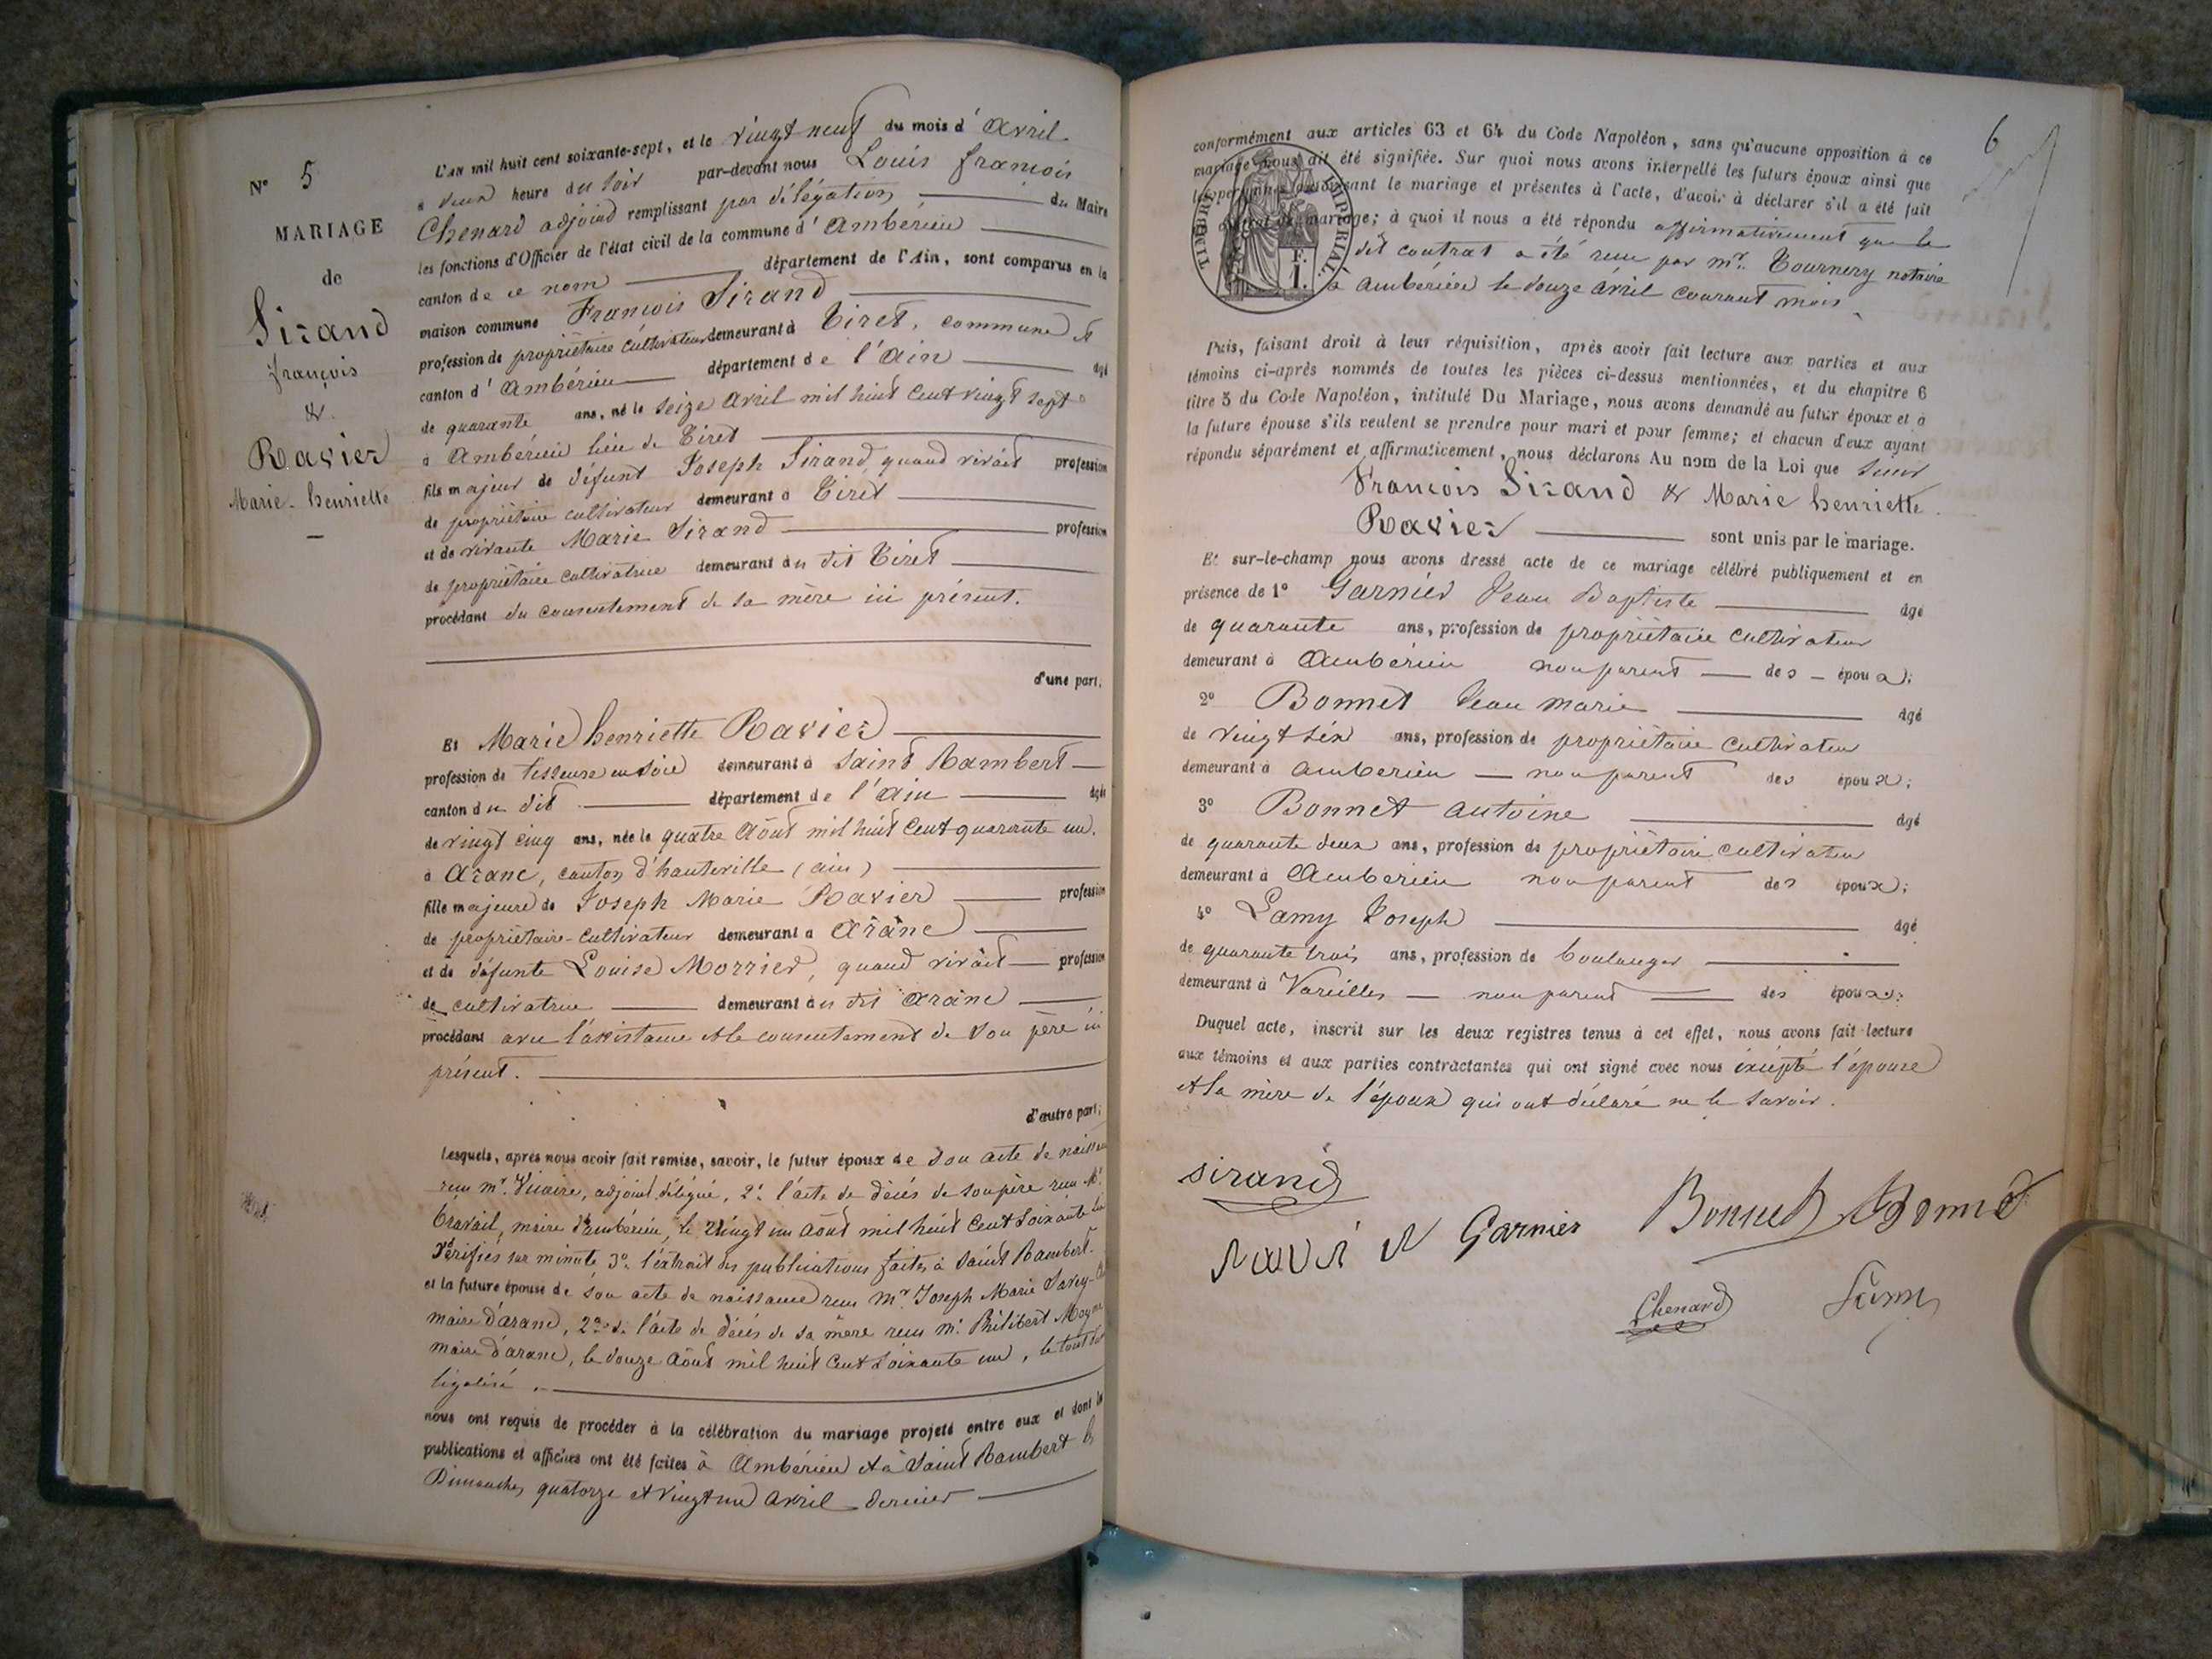 N° 5
MARIAGE
de
Sirand
françois
&
Ravier
Marie-henriette
L'AN mil huit cent soixante-sept, et le vingt neuf du mois d'avril
à deux heure du soir par-devant nous Louis françois
Chenard adjoind remplissant par délégation du Maire
les fonctions d'Officier de l'état civil de la commune d'Ambérieu
canton de ce nom département de l'Ain, sont comparus en la
maison commune François Sirand
profession de propriétaire cultivateur demeurant à Tiret, commune et
canton d'Ambérieu département de l'ain âgé
de quarante ans, né le seize avril mil huit cent vingt sept
à Ambérieu lieu de Tiret
fils majeur de défunt Joseph Sirand, quand vivait profession
de propriétaire cultivateur demeurant à Tiret
et de vivante Marie Sirand profession
de propriétaire cultivatrice demeurant au dit Tiret
procédant du consentement de sa mère ici présent.
d'une part,
Et Marie henriette Ravier
profession de tisseuse en soie demeurant à Saint Rambert
canton du dit département de l'ain âgée
de vingt cinq ans, née le quatre Août mil huit cent quarante un.
à Aranc, canton d'hauteville (ain)
fille majeure de Joseph Marie Ravier profession
de propriétaire-cultivateur demeurant à Aranc
et de défunte Louise Morrier, quand vivait profession
de cultivatrice demeurant au dit aranc
procédant avec l'assistance et le consentement de son père ici
présent.
d'autre part;
Lesquels, après nous avoir fait remise, savoir, le futur époux de son acte de
reçu mr. Vicaire, adjoint délégué, 2° l'acte de décès de son père reçu Mr.
Travail, maire d'ambérieu, le vingt un août mil huit cent soixante
vérifiés sur minute 3° l'extrait des publications faites à Saint Rambert.
et la future épouse de son acte de naissance reçu Mr. Joseph Marie
maire d'aranc, 2° de l'acte de décès de sa mère reçu Mr. Philibert
maire d'aranc, le douze août mil huit cent soixante un, le tout
légalisé.
nous ont requis de procéder à la célébration du mariage projeté entre eux et dont les
publications et affiches ont été faites à Ambérieu et à Saint Rambert les
Dimanches quatorze et vingt un avril dernier
6
conformément aux articles 63 et 64 du Code Napoléon, sans qu'aucune opposition à ce
mariage nous ait été signifiée. Sur quoi nous avons interpellé les futurs époux ainsi que
les personnes autorisant le mariage et présentes à l'acte, d'avoir à déclarer s'il a été fait
mariage; à quoi il nous a été répondu affirmativement que le
dit contrat a été reçu par mr. Tournery notaire
à ambérieu le douze avril courant mois.
TIMBRE IMPÉRIAL
F.
1.
Puis, faisant droit à leur réquisition, après avoir fait lecture aux parties et aux
témoins ci-après nommés de toutes les pièces ci-dessus mentionnées, et du chapitre 6
titre 5 du Code Napoléon, intitulé Du Mariage, nous avons demandé au futur époux et à
la future épouse s'ils veulent se prendre pour mari et pour femme; et chacun d'eux ayant
répondu séparément et affirmativement, nous déclarons Au nom de la Loi que
François Sirand & Marie henriette
Ravier sont unis par le mariage.
Et sur-le-champ nous avons dressé acte de ce mariage célébré publiquement et en
présence de 1° Garnier Jean Baptiste âgé
de quarante ans, profession de propriétaire cultivateur
demeurant à Ambérieu non parent des époux;
2° Bonnet Jean marie âgé
de vingt six ans, profession de propriétaire cultivateur
demeurant à ambérieu non parent des époux;
3° Bonnet antoine âgé
de quarante deux ans, profession de propriétaire cultivateur
demeurant à Ambérieu non parent des époux;
4° Lamy Joseph âgé
de quarante trois ans, profession de boulanger
demeurant à Vareilles non parent des époux;
Duquel acte, inscrit sur les deux registres tenus à cet effet, nous avons fait lecture
aux témoins et aux parties contractantes qui ont signé avec nous éxcépté l'épouse
et la mère de l'époux qui ont déclaré ne le savoir.
sirand
Garnier Bonnet Bonnet
Chenard Lamy